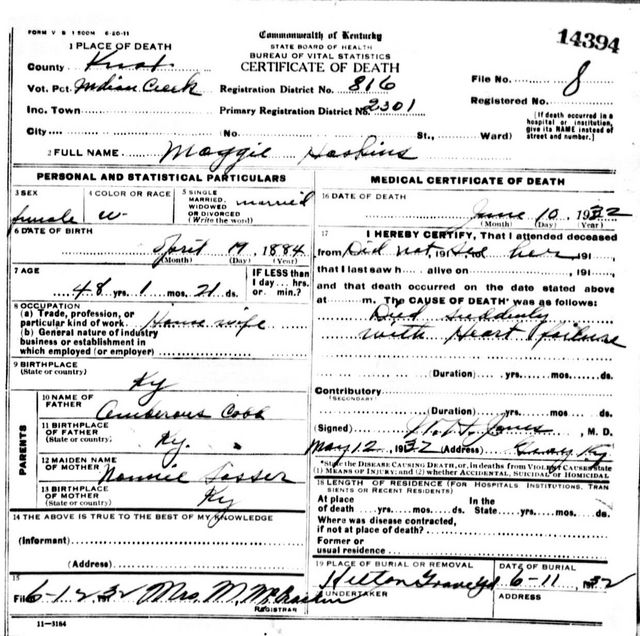 FORM V S 1 500M 6-20-11
Commonwealth of Kentucky
STATE BOARD OF HEALTH
BUREAU OF VITAL STATISTICS
CERTIFICATE OF DEATH
14394
1 PLACE OF DEATH
County Knox
Vot. Pct. Indian Creek
Inc. Town
City
Registration District No. 816
Primary Registration District No. 2301
(No. St., Ward)
File No. 8
Registered No.
[If death occurred in a
hospital or institution,
give its NAME instead of
street and number.]
2 FULL NAME Maggie Hoskins
PERSONAL AND STATISTICAL PARTICULARS
3 SEX
female
4 COLOR OR RACE
w
5 SINGLE
MARRIED,
WIDOWED
OR DIVORCED
(Write the word)
married
6 DATE OF BIRTH
April 19, 1884
(Month) (Day) (Year)
7 AGE
48 yrs. 1 mos. 21 ds.
IF LESS than
1 day.... hrs.
or min.?
8 OCCUPATION
(a) Trade, profession, or
particular kind of work House wife
(b) General nature of industry
business or establishment in
which employed (or employer)
9 BIRTHPLACE
(State or country)
Ky
PARENTS
10 NAME OF
FATHER
Cobb
11 BIRTHPLACE
OF FATHER
(State or country)
Ky.
12 MAIDEN NAME
OF MOTHER
Nannie Sasser
13 BIRTHPLACE
OF MOTHER
(State or country)
Ky
14 THE ABOVE IS TRUE TO THE BEST OF MY KNOWLEDGE
(Informant)
(Address)
15
Filed 6-12-32 191 Mrs. M.
REGISTRAR
11-3184
MEDICAL CERTIFICATE OF DEATH
16 DATE OF DEATH
June 10, 1932
(Month) (Day) (Year)
17 I HEREBY CERTIFY, That I attended deceased
from Did not, 191 See her 191
that I last saw h alive on , 191 ,
and that death occurred on the date stated above
at m. The CAUSE OF DEATH was as follows:
Died suddenly
with Heart failure
(Duration) yrs. mos. ds.
Contributory
(SECONDARY)
(Duration) yrs. mos. ds.
(Signed) Jones, M. D.
May 12, 1932 (Address) Gray Ky
*State the DISEASE CAUSING DEATH, or, in deaths from VIOLENT CAUSES state
(1) MEANS OF INJURY; and (2) whether ACCIDENTAL, SUICIDAL or HOMICIDAL
18 LENGTH OF RESIDENCE (FOR HOSPITALS, INSTITUTIONS, TRAN
SIENTS OR RECENT RESIDENTS)
At place
of death yrs. mos. ds.
In the
State yrs. mos. ds.
Where was disease contracted,
if not at place of death?
Former or
usual residence
19 PLACE OF BURIAL OR REMOVAL
Graveyd
DATE OF BURIAL
6-11 1932
UNDERTAKER
ADDRESS